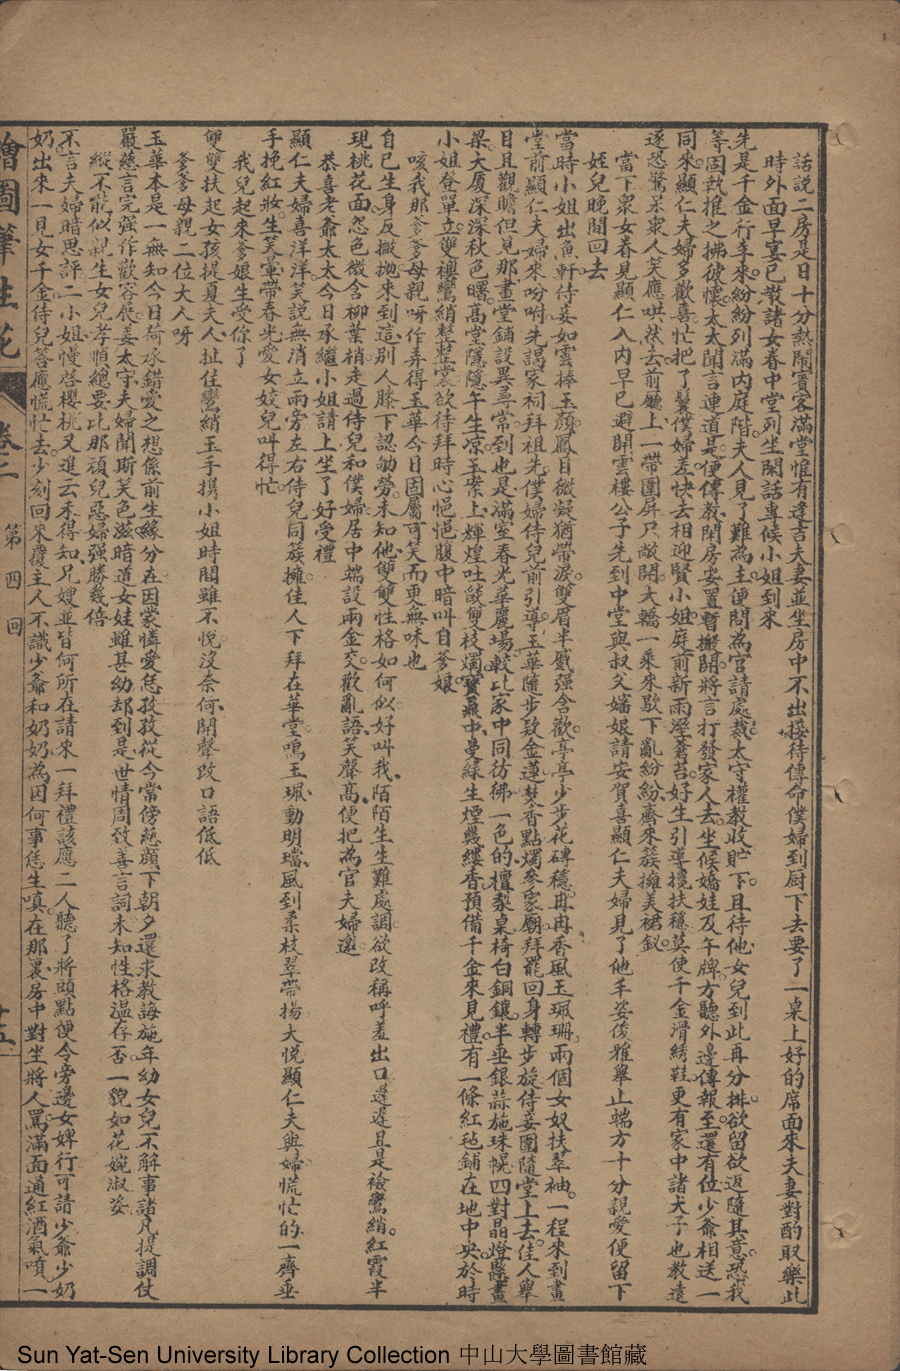 話說二房是日十分熱鬧賓客滿堂惟有逢吉夫妻並坐房中不出接待傳命僕婦到厨下去要了一桌上好的席面來夫妻對酌取樂此
時外面早宴已散諸女眷中堂列坐閑話專候小姐到來
先是千金行李來紛紛列滿內庭階夫人見了難為主便問為官請處裁太守權教收貯下且待他女兒到此再分排欲留欲返隨其意恐我
等固執推之拂彼懷太太聞言連道是便傳教閑房安置暫搬開將言打發家人去坐候嬌娃及午牌方聽外邊傳報至還有位少爺相送一
同來顯仁夫婦多歡喜忙把了鬟僕婦差快去相迎賢小姐庭前新雨溼蒼苔好生引導攙扶穩莫使千金滑綉鞋更有家中諸犬子也教遠
逐恐驚呆衆人笑應哄然去前廳上一帶圍屏只敞開大轎一乘來歇下亂紛紛齊來簇擁美裙釵
當下衆女眷見顯仁入內早已避開雲樓公子先到中堂與叔父嬸娘請安賀喜顯仁夫婦見了他丰姿俊雅舉止端方十分親愛便留下
姪兒晚間回去
當時小姐出魚軒侍妾如雲捧玉顏鳳目微凝猶帶淚雙眉半蹙强含歡亭亭少步花磚穩冉冉香風玉珮珊兩個女奴扶翠袖一程來到畫
堂前顯仁夫婦來吩咐先謁家祠拜祖先僕婦侍兒前引導玉華隨步致金蓮焚香點燭參家廟拜罷回身轉步旋侍妾圍隨堂上去佳人舉
目且觀瞻但見那畫堂鋪設異尋常到也是滿室春光華麗場較比家中同彷彿一色的檀梨桌椅白銅鑲半垂銀蒜施珠幌四對晶燈懸畫
梁大厦深深秋色曙高堂隱隱午生凉玉案上輝煌吐燄雙枝燭寶鼎中曼綠生煙幾縷香預備千金來見禮有一條紅毡鋪在地中央於時
小姐登單立雙襪鸞綃整整裳欲待拜時心悒悒腹中暗叫自爹娘
咳我那爹爹母親呀作弄得玉華今日固屬可笑而更無味也
自己生身反撇拋來到這别人膝下認劬勞未知他雙雙性格如何似好叫我陌陌生生難處調欲改稱呼羞出口遲遲且是襝鸞綃紅霞半
現桃花面怨色微含柳葉梢走過侍兒和僕婦居中端設兩金交歡亂語笑聲高便把為官夫婦邀
恭喜老爺太太今日承繼小姐請上坐了好受禮
顯仁夫婦喜洋洋笑說無消立兩旁左右侍兒同蔟擁佳人下拜在華堂鳴玉珮動明璫風到柔枝翠帶揚大悅顯仁夫與婦慌忙的一齊垂
手挽紅妝生笑暈帶春光愛女姣兒叫得忙
我兒起來爹娘生受你了
雙雙扶起女孩提夏夫人扯住鸞綃玉手携小姐時間雖不悅沒奈何開聲改口語低低
爹爹母親二位大人呀
玉華本是一無知今日荷承錯愛之想係前生緣分在因蒙憐愛恁孜孜從今常傍慈顏下朝夕還求教誨施年幼女兒不解事諸凡提調仗
嚴慈言完强作歡容展姜太守夫婦聞斯笑色滋暗道女娃雖甚幼却到是世情周致善言詞未知性格溫存否一貌如花婉淑姿
縱不能似親生女兒孝順總要比那頑兒惡婦强勝幾倍
不言夫婦暗思評二小姐慢啓櫻桃又進云未得知兄嫂並皆何所在請來一拜禮該應二人聽了將頭點便令旁邊女婢行可請少爺少奶
奶出來一見女千金侍兒答應慌忙去少刻回來覆主人不識少爺和奶奶為因何事恁生嗔在那裏房中對坐將人罵滿面通紅酒氣噴一
繪圖筆生花
卷二
第四回
十五
Sun Yat-Sen University Library Collection 中山大學圖書館藏